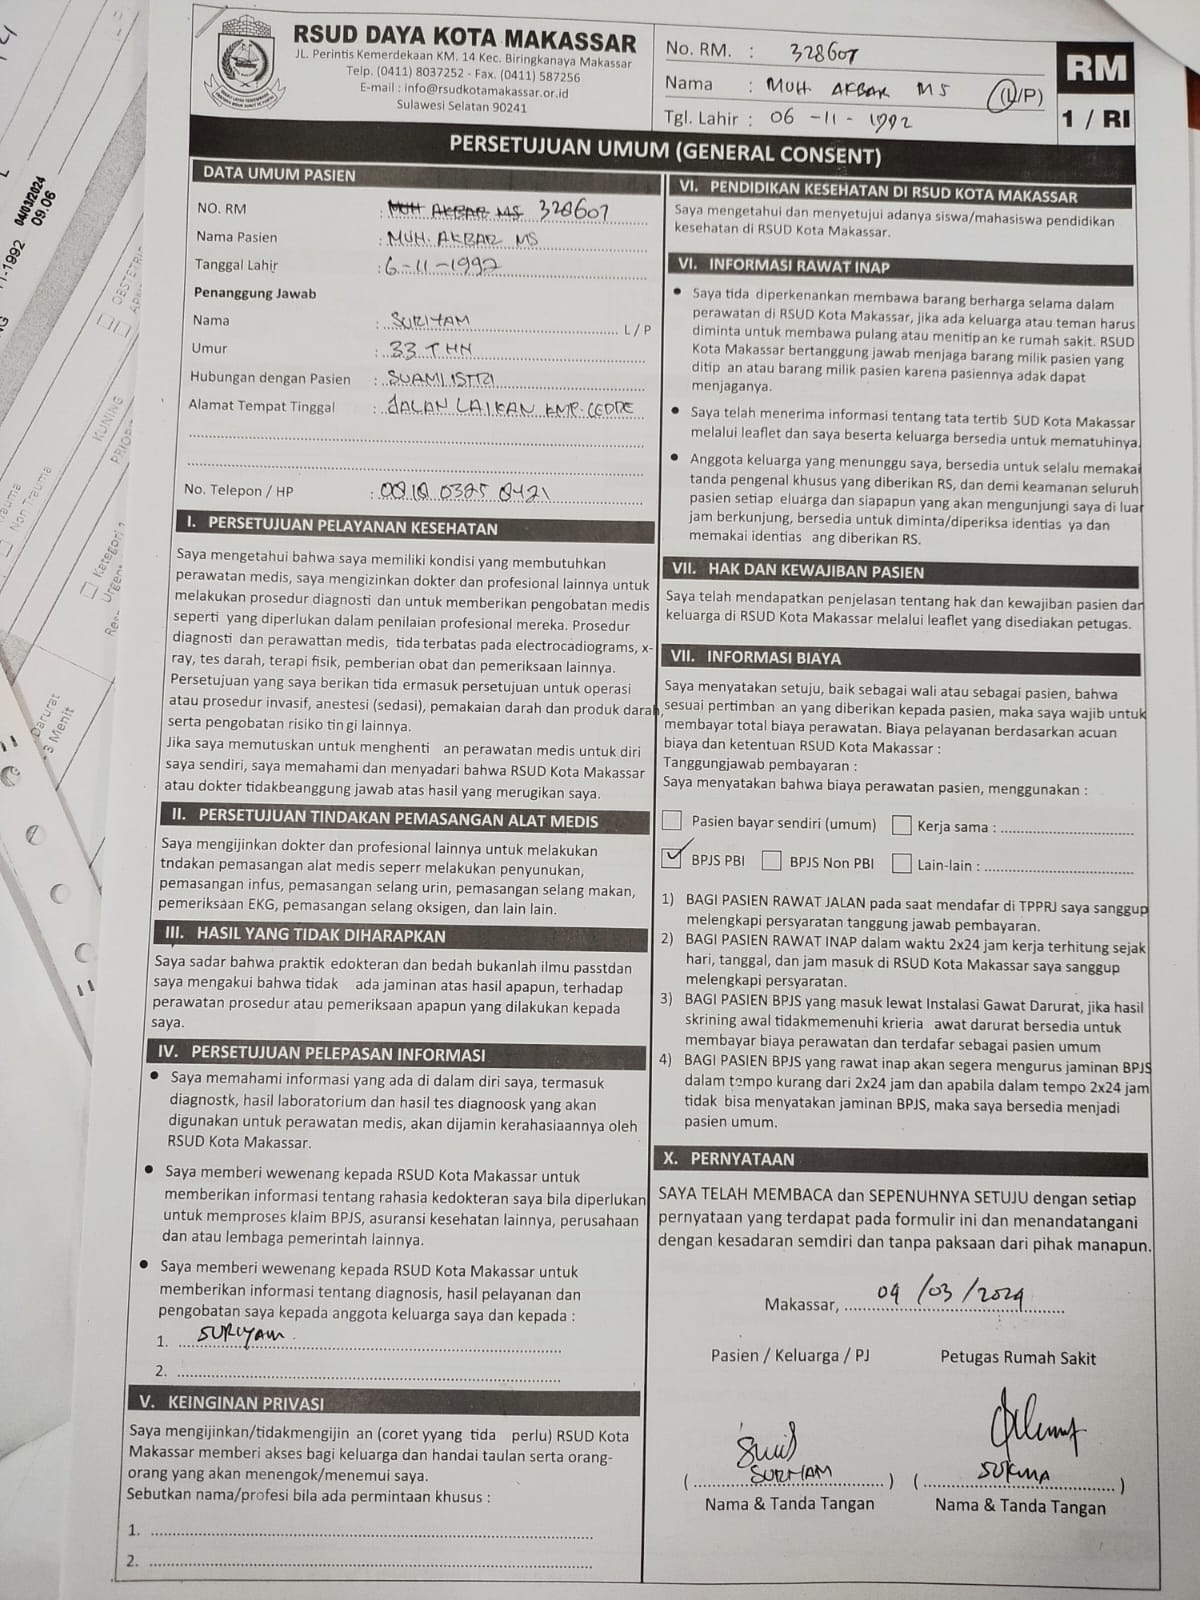 RSUD DAYA KOTA MAKASSAR
JL. Perintis Kemerdekaan KM. 14 Kec. Biringkanaya Makassar
Telp. (0411) 8037252 - Fax. (0411) 587256
E-mail : info@rsudkotamakassar.or.id
Sulawesi Selatan 90241
No. RM. : 328607
Nama : MUH AKBAR MS (L/P)
Tgl. Lahir : 06 -11- 1992
RM
1 / RI
PERSETUJUAN UMUM (GENERAL CONSENT)
DATA UMUM PASIEN
NO. RM : MUH AKBAR MS 328607
Nama Pasien : MUH. AKBAR MS
Tanggal Lahir : 6-11-1992
Penanggung Jawab
Nama : SURIYAM L / P
Umur : 33 THN
Hubungan dengan Pasien : SUAMI ISTRI
Alamat Tempat Tinggal : JALAN LAIKAN KMP. CEDDE
No. Telepon / HP :
I. PERSETUJUAN PELAYANAN KESEHATAN
Saya mengetahui bahwa saya memiliki kondisi yang membutuhkan
perawatan medis, saya mengizinkan dokter dan profesional lainnya untuk
melakukan prosedur diagnosti dan untuk memberikan pengobatan medis
seperti yang diperlukan dalam penilaian profesional mereka. Prosedur
diagnosti dan perawattan medis, tida terbatas pada electrocadiograms, x-
ray, tes darah, terapi fisik, pemberian obat dan pemeriksaan lainnya.
Persetujuan yang saya berikan tida ermasuk persetujuan untuk operasi
atau prosedur invasif, anestesi (sedasi), pemakaian darah dan produk darah,
serta pengobatan risiko tingi lainnya.
Jika saya memutuskan untuk menghenti an perawatan medis untuk diri
saya sendiri, saya memahami dan menyadari bahwa RSUD Kota Makassar
atau dokter tidakbeanggung jawab atas hasil yang merugikan saya.
II. PERSETUJUAN TINDAKAN PEMASANGAN ALAT MEDIS
Saya mengijinkan dokter dan profesional lainnya untuk melakukan
tndakan pemasangan alat medis seperr melakukan penyunukan,
pemasangan infus, pemasangan selang urin, pemasangan selang makan,
pemeriksaan EKG, pemasangan selang oksigen, dan lain lain.
III. HASIL YANG TIDAK DIHARAPKAN
Saya sadar bahwa praktik edokteran dan bedah bukanlah ilmu passtdan
saya mengakui bahwa tidak ada jaminan atas hasil apapun, terhadap
perawatan prosedur atau pemeriksaan apapun yang dilakukan kepada
saya.
IV. PERSETUJUAN PELEPASAN INFORMASI
• Saya memahami informasi yang ada di dalam diri saya, termasuk
diagnostk, hasil laboratorium dan hasil tes diagnoosk yang akan
digunakan untuk perawatan medis, akan dijamin kerahasiaannya oleh
RSUD Kota Makassar.
• Saya memberi wewenang kepada RSUD Kota Makassar untuk
memberikan informasi tentang rahasia kedokteran saya bila diperlukan
untuk memproses klaim BPJS, asuransi kesehatan lainnya, perusahaan
dan atau lembaga pemerintah lainnya.
• Saya memberi wewenang kepada RSUD Kota Makassar untuk
memberikan informasi tentang diagnosis, hasil pelayanan dan
pengobatan saya kepada anggota keluarga saya dan kepada :
1. SURIYAM
2.
V. KEINGINAN PRIVASI
Saya mengijinkan/tidakmengijin an (coret yyang tida perlu) RSUD Kota
Makassar memberi akses bagi keluarga dan handai taulan serta orang-
orang yang akan menengok/menemui saya.
Sebutkan nama/profesi bila ada permintaan khusus :
1.
2.
VI. PENDIDIKAN KESEHATAN DI RSUD KOTA MAKASSAR
Saya mengetahui dan menyetujui adanya siswa/mahasiswa pendidikan
kesehatan di RSUD Kota Makassar.
VI. INFORMASI RAWAT INAP
• Saya tida diperkenankan membawa barang berharga selama dalam
perawatan di RSUD Kota Makassar, jika ada keluarga atau teman harus
diminta untuk membawa pulang atau menitip an ke rumah sakit. RSUD
Kota Makassar bertanggung jawab menjaga barang milik pasien yang
ditip an atau barang milik pasien karena pasiennya adak dapat
menjaganya.
• Saya telah menerima informasi tentang tata tertib SUD Kota Makassar
melalui leaflet dan saya beserta keluarga bersedia untuk mematuhinya.
• Anggota keluarga yang menunggu saya, bersedia untuk selalu memakai
tanda pengenal khusus yang diberikan RS, dan demi keamanan seluruh
pasien setiap eluarga dan siapapun yang akan mengunjungi saya di luar
jam berkunjung, bersedia untuk diminta/diperiksa identias ya dan
memakai identias ang diberikan RS.
VII. HAK DAN KEWAJIBAN PASIEN
Saya telah mendapatkan penjelasan tentang hak dan kewajiban pasien dan
keluarga di RSUD Kota Makassar melalui leaflet yang disediakan petugas.
VII. INFORMASI BIAYA
Saya menyatakan setuju, baik sebagai wali atau sebagai pasien, bahwa
sesuai pertimban an yang diberikan kepada pasien, maka saya wajib untuk
membayar total biaya perawatan. Biaya pelayanan berdasarkan acuan
biaya dan ketentuan RSUD Kota Makassar :
Tanggungjawab pembayaran :
Saya menyatakan bahwa biaya perawatan pasien, menggunakan :
Pasien bayar sendiri (umum) Kerja sama :
BPJS PBI BPJS Non PBI Lain-lain :
1) BAGI PASIEN RAWAT JALAN pada saat mendafar di TPPRJ saya sanggup
melengkapi persyaratan tanggung jawab pembayaran.
2) BAGI PASIEN RAWAT INAP dalam waktu 2x24 jam kerja terhitung sejak
hari, tanggal, dan jam masuk di RSUD Kota Makassar saya sanggup
melengkapi persyaratan.
3) BAGI PASIEN BPJS yang masuk lewat Instalasi Gawat Darurat, jika hasil
skrining awal tidakmemenuhi krieria awat darurat bersedia untuk
membayar biaya perawatan dan terdafar sebagai pasien umum
4) BAGI PASIEN BPJS yang rawat inap akan segera mengurus jaminan BPJS
dalam tempo kurang dari 2x24 jam dan apabila dalam tempo 2x24 jam
tidak bisa menyatakan jaminan BPJS, maka saya bersedia menjadi
pasien umum.
X. PERNYATAAN
SAYA TELAH MEMBACA dan SEPENUHNYA SETUJU dengan setiap
pernyataan yang terdapat pada formulir ini dan menandatangani
dengan kesadaran semdiri dan tanpa paksaan dari pihak manapun.
Makassar, 04 /03 /2024
Pasien / Keluarga / PJ Petugas Rumah Sakit
( SURIYAM ) ( SUKMA )
Nama & Tanda Tangan Nama & Tanda Tangan
04/03/2024
09.06
11-1992
OBSTETRI
KUNING
Non Trauma
Kategori
Darurat
3 Menit